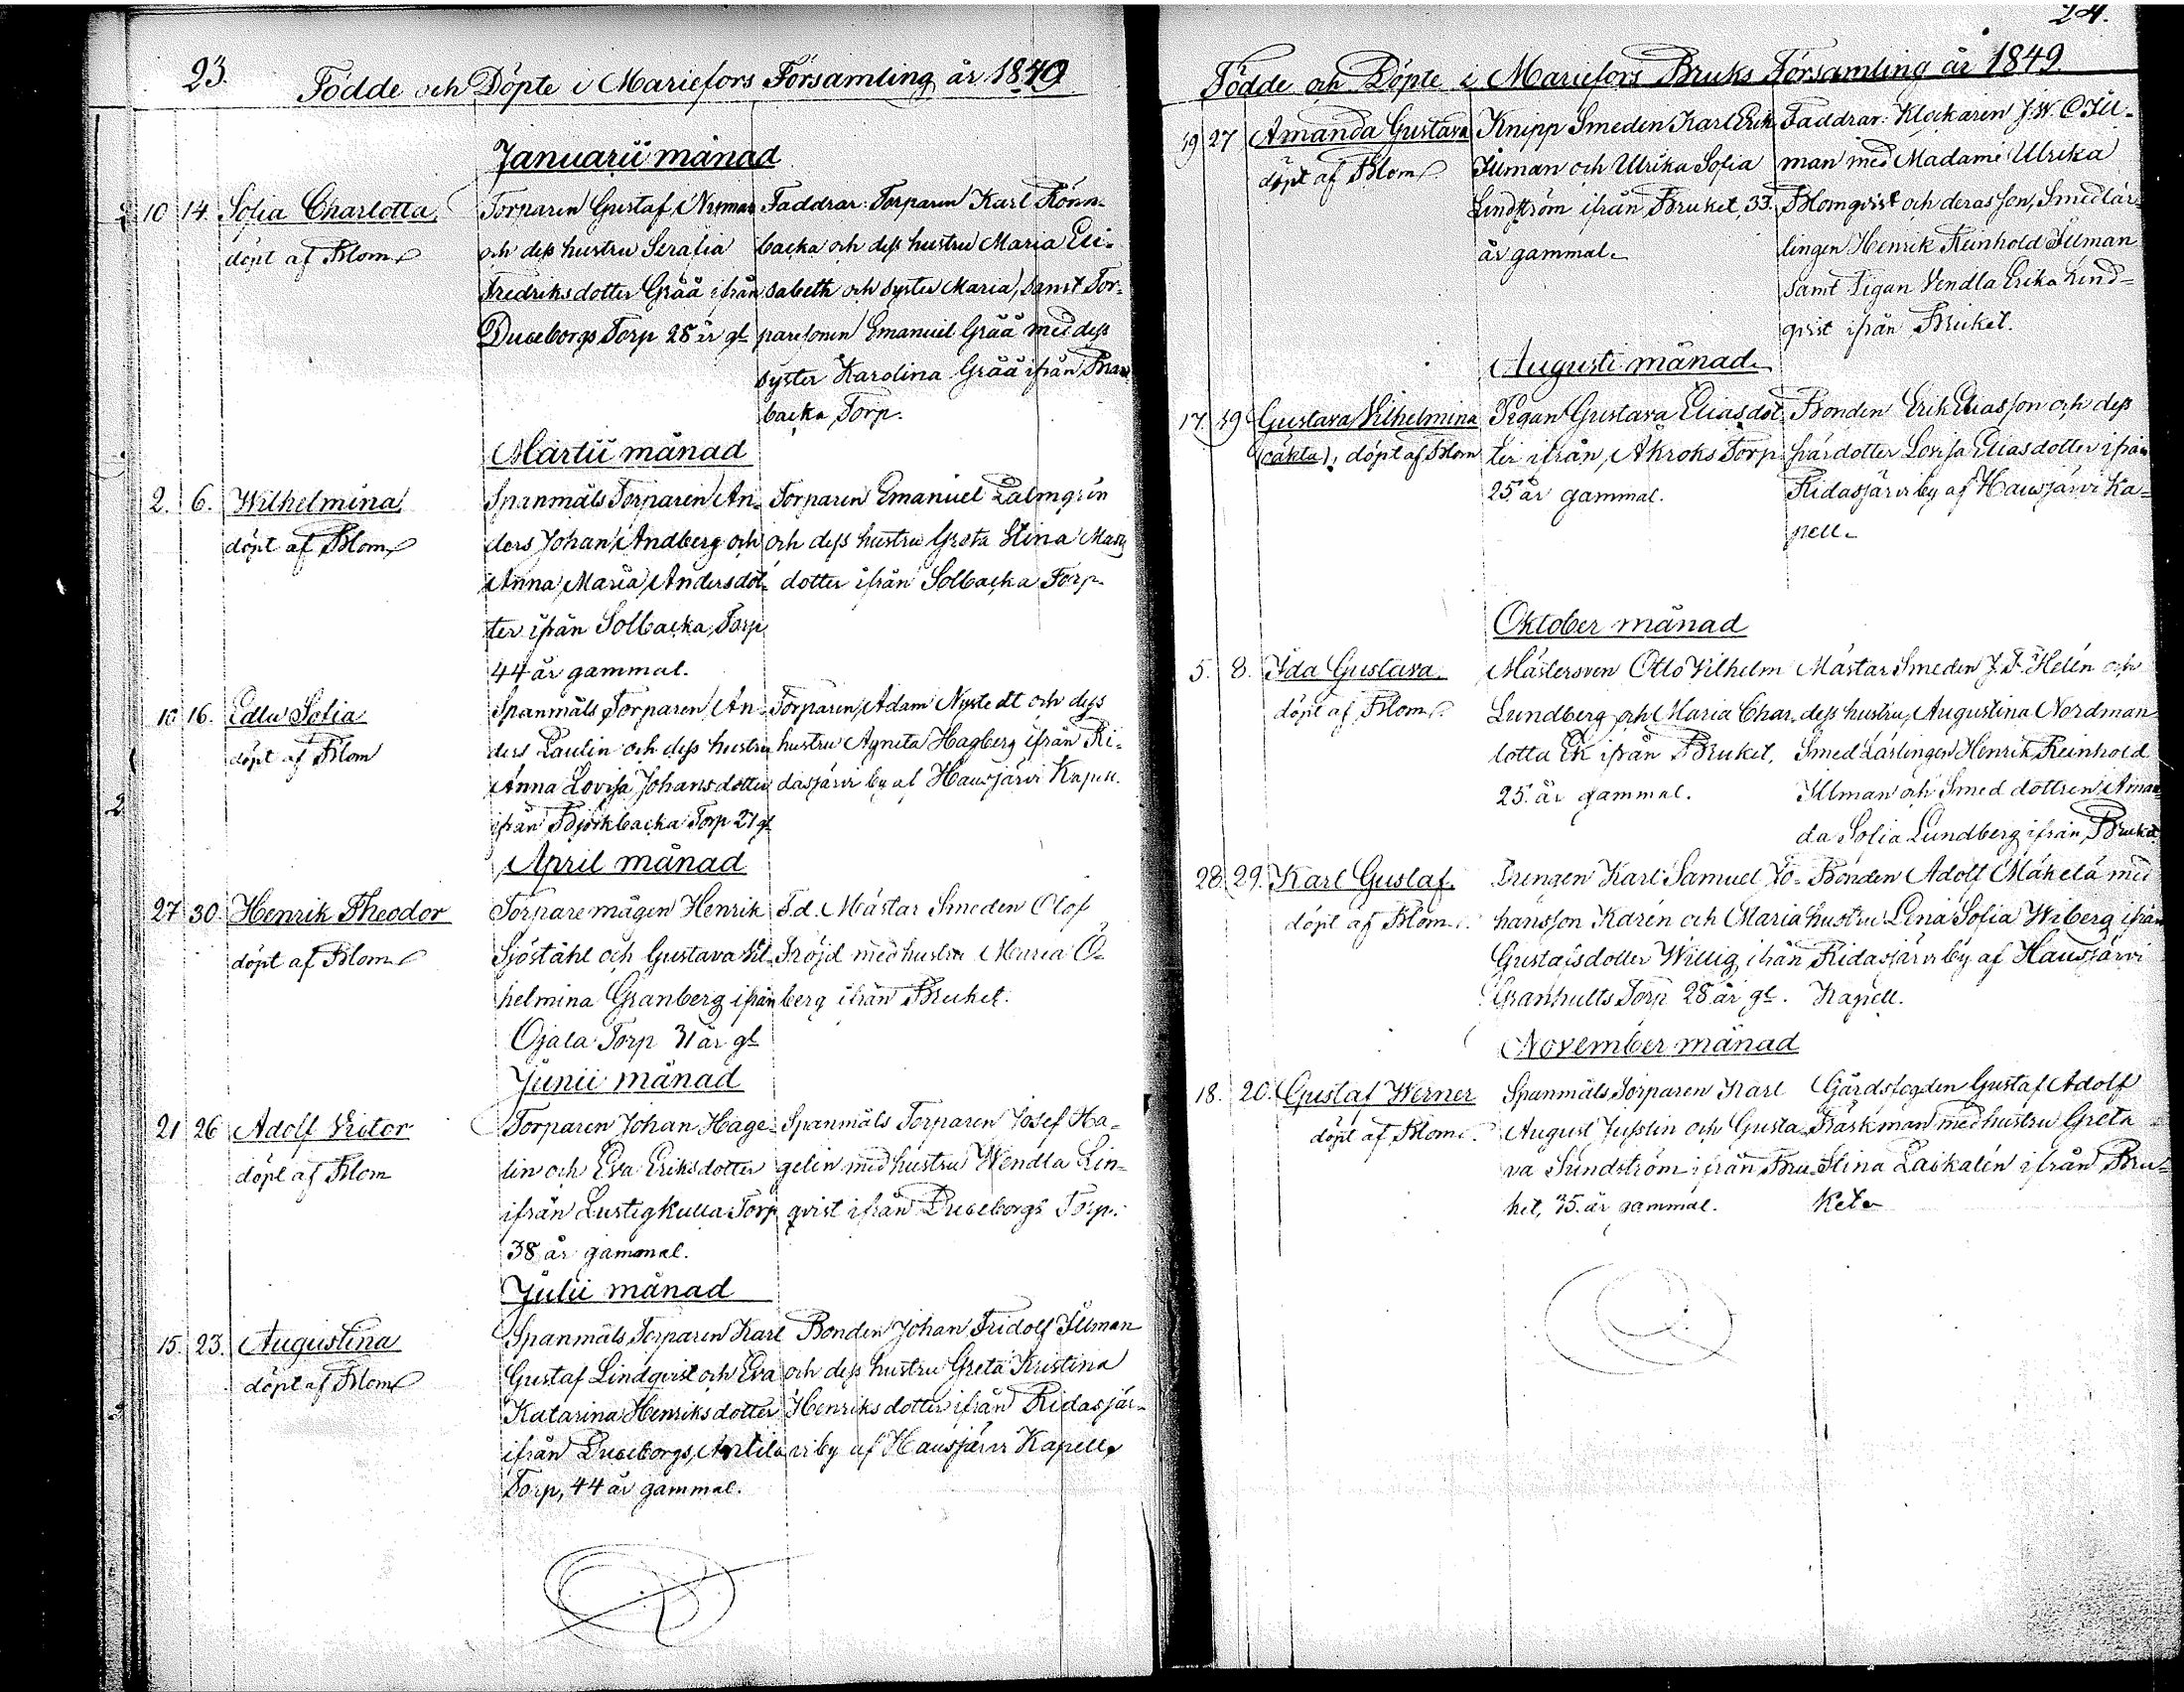 23.
Födde och Döpte i Mariefors Församling år 1849
Januarii månad
10 14. Sofia Charlotta, Torparen Gustaf Nyman Faddrar: Torparen Karl Rönn-
döpt af Blom och dess hustru Serafia backa och dess hustru Maria Eli-
Fredriksdotter Grää ifrån sabeth och syster Maria, samt Tor-
Duveborgs Torp 28 år gl paresonen Emanuel Grää med dess
syster Karolina Grää ifrån
backa Torp.
Martii månad
2. 6. Wilhelmina, Spanmåls Torparen An- Torparen Emanuel Palmgrén
döpt af Blom ders Johan Andberg och och dess hustru Greta Stina Matts
Anna Maria Andersdot- dotter ifrån Solbacka Torp.
ter ifrån Solbacka Torp
44 år gammal.
10 16. Edla Sofia Spanmåls Torparen An- Torparen Adam Nystedt och dess
döpt af Blom ders Paulin och dess hustru hustru Agneta Hagberg ifrån Ri-
Anna Lovisa Johansdotter dasjärvi by af Hausjärvi Kapell.
ifrån Björkbacka Torp 21 gl
April månad
27 30. Henrik Theodor Torparemågen Henrik F.d. Mästar Smeden Olof
döpt af Blom Sjöståhl och Gustava Vil- Fröjd med hustru Maria Ö-
helmina Granberg ifrån berg ifrån Bruket.
Ojala Torp 31 år gl
Junii månad
21 26 Adolf Victor Torparen Johan Hage- Spanmåls Torparen Josef Ha-
döpt af Blom lin och Eva Eriksdotter gelin med hustru Wendla Lin-
ifrån Lustigkulla Torp qvist ifrån Duveborgs Torp.
38 år gammal.
Julii månad
15. 23. Augustina Spanmåls Torparen Karl Bonden Johan Fridolf Illman
döpt af Blom Gustaf Lindqvist och Eva och dess hustru Greta Kristina
Katarina Henriksdotter Henriksdotter ifrån Ridasjär-
ifrån Duveborgs vi by af Hausjärvi Kapell,
Torp, 44 år gammal.
24.
Födde och Döpte i Mariefors Bruks Församling år 1849.
19 27 Amanda Gustava Knipp Smeden Karl Erik Faddrar: Klockaren J.W. Ill-
döpt af Blom. Illman och Ulrika Sofia man med Madame Ulrika
Lindström ifrån Bruket, 33. Blomqvist och deras son, Smedlär-
år gammal. lingen Henrik Reinhold Illman
samt Pigan Vendla Erika Lind-
qvist ifrån Bruket.
Augusti månad.
17. 19. Gustava Vilhelmina Pigan Gustava Eliasdot- Bonden Erik Eliasson och dess
(oäkta), döpt af Blom ter ifrån Åkroks Torp Lovisa Eliasdotter ifrån
25 år gammal. Ridasjärvi by af Hausjärvi Ka-
pell.
Oktober månad
5. 8. Ida Gustava. Mästersven Otto Vilhelm Mästar Smeden J. F. Helén och
döpt af Blom. Lundberg och Maria Char- dess hustru Augustina Nordman
lotta Ek ifrån Bruket, Smed Lärlingen Henrik Reinhold
25. år gammal. Illman och Smed dottren Aman-
da Sofia Lundberg ifrån Bruket.
28. 29. Karl Gustaf. Drengen Karl Samuel Jo- Bonden Adolf Mäkelä med
döpt af Blom. hansson Karén och Maria hustru Lena Sofia Wiberg ifrån
Gustafsdotter Willig ifrån Ridasjärvi by af Hausjärvi
Granhults Torp 28 år gl. Kapell.
November månad
18. 20. Gustaf Werner Spanmåls Torparen Karl Gårdsfogden Gustaf Adolf
döpt af Blom. August Jusslin och Gusta- Träskman med hustru Greta
va Sundström ifrån Bru- Stina Laskalén ifrån Bru-
ket, 35. år gammal. ket.